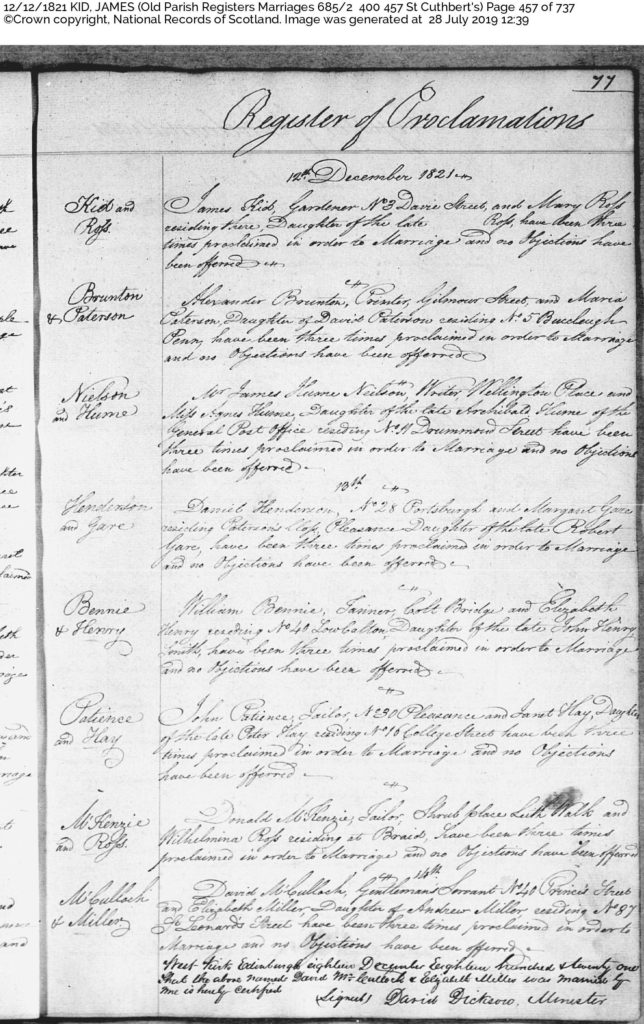 12/12/1821 KID, JAMES (Old Parish Registers Marriages 685/2 400 457 St Cuthbert's) Page 457 of 737
©Crown copyright, National Records of Scotland. Image was generated at 28 July 2019 12:39
77
Register of Proclamations
12th December 1821
Kid and
Ross
James Kid, Gardener No 3 Davie Street, and Mary Ross
residing there, Daughter of the late Ross, have been three
times proclaimed in order to Marriage and no Objections have
been offerred
Brunton
& Paterson
Alexander Brunton, Printer, Gilmour Street, and Maria
Paterson, Daughter of David Paterson residing No 5 Buccleugh
Penn, have been three times proclaimed in order to Marriage
and no Objections have been offerred
Nielson
and Hume
Mr James Hume Neilson, Writer, Wellington Place and
Miss Agnes Hume, Daughter of the late Archibald Hume of the
General Post Office residing No 11 Drummond Street have been
three times proclaimed in order to Marriage and no Objections
have been offerred
13th
Henderson
and Gare
Daniel Henderson, No 28 Portsburgh and Margaret Gare
residing Patersons Closs, Pleasance Daughter of the late Robert
Gare, have been three times proclaimed in order to Marriage
and no Objections have been offerred
Bennie
& Henry
William Bennie, Tanner, Colt Bridge and Elizabeth
Henry residing No 40 Low Calton, Daughter of the late John Henry
Smith, have been three times proclaimed in order to Marriage
and no Objections have been offerred
Patience
and Hay
John Patience, Tailor, No 290 Pleasance and Janet Hay, Daughter
of the late Peter Hay residing No 16 College Street have been three
times proclaimed in order to Marriage and no Objections
have been offerred
McKenzie
and Ross
Donald McKenzie, Tailor, Shrub place Leith Walk and
Wilhelmina Ross residing at Braid, have been three times
proclaimed in order to Marriage and no Objections have been offerred
14th
McCulloch
& Miller
David McCulloch, Gentlemans Servant No 40 Princes Street
and Elizabeth Miller, Daughter of Andrew Miller residing No 87
St Leonards Street have been three times proclaimed in order to
Marriage and no Objections have been offerred
West Kirk Edinburgh eighteen December Eighteen hundred & twenty one
that the above named David McCulloch & Elizabeth Miller was married by
me is hereby Certified
(Signed) David Dickson, Minister